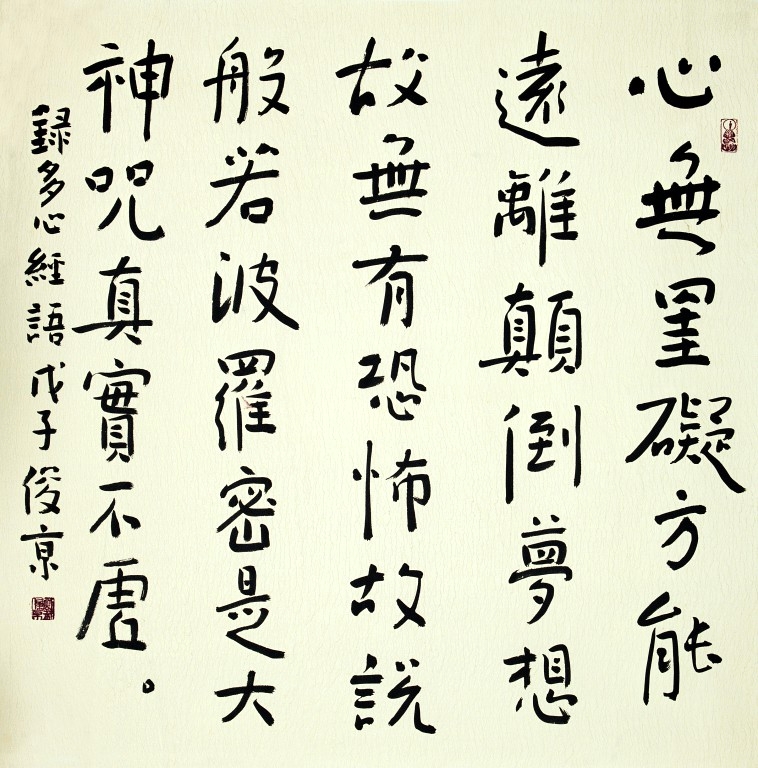 心無罣礙方能
遠離顛倒夢想
故無有恐怖故說
般若波羅密是大
神咒真實不虛。
録多心經語戊子俊京